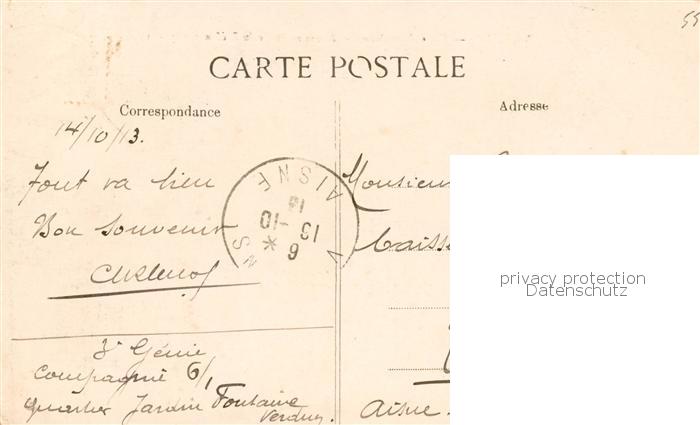 55
CARTE POSTALE
Correspondance
Adresse
14/10/13.
Tout va bien
Bon Souvenir
3e Génie
Compagnie 6/1
Quartier Jardin Fontaine
Verdun.
AISNE
15 -10
Monsieur
Caiss
Aisne.
privacy protection
Datenschutz